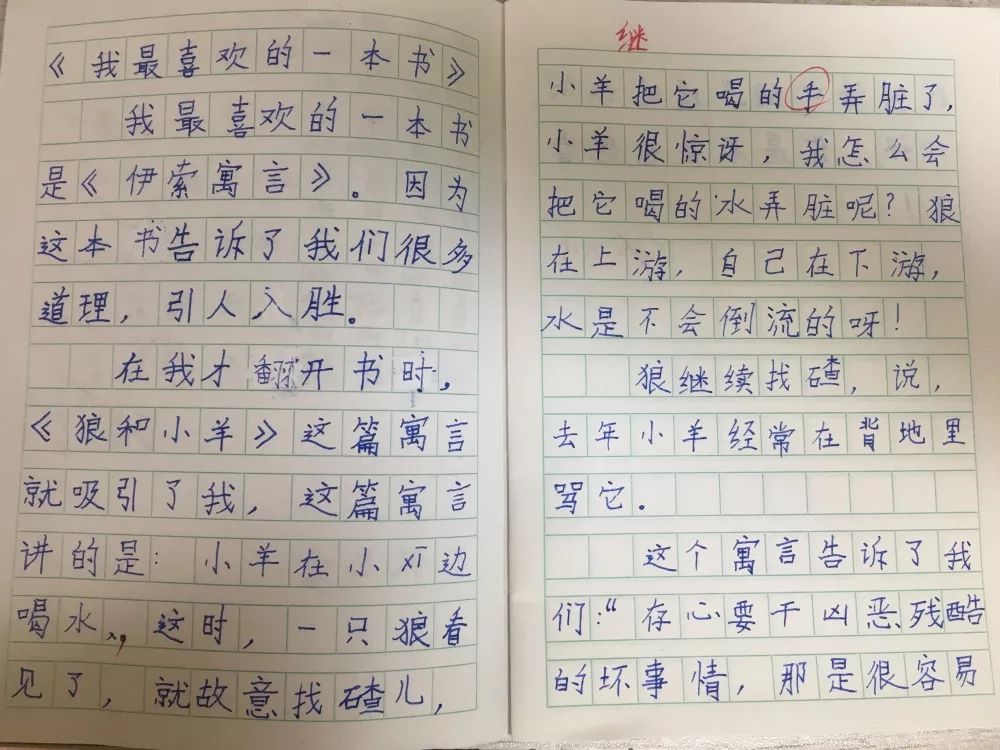 《我最喜欢的一本书》
我最喜欢的一本书
是《伊索寓言》。因为
这本书告诉了我们很多
道理，引人入胜。
在我才翻开书时，
《狼和小羊》这篇寓言
就吸引了我，这篇寓言
讲的是：小羊在小河边
喝水，这时，一只狼看
见了，就故意找碴儿，
继
小羊把它喝的手弄脏了，
小羊很惊讶，我怎么会
把它喝的水弄脏呢？狼
在上游，自己在下游，
水是不会倒流的呀！
狼继续找碴，说，
去年小羊经常在背地里
骂它。
这个寓言告诉了我
们：“存心要干凶恶残酷
的坏事情，那是很容易